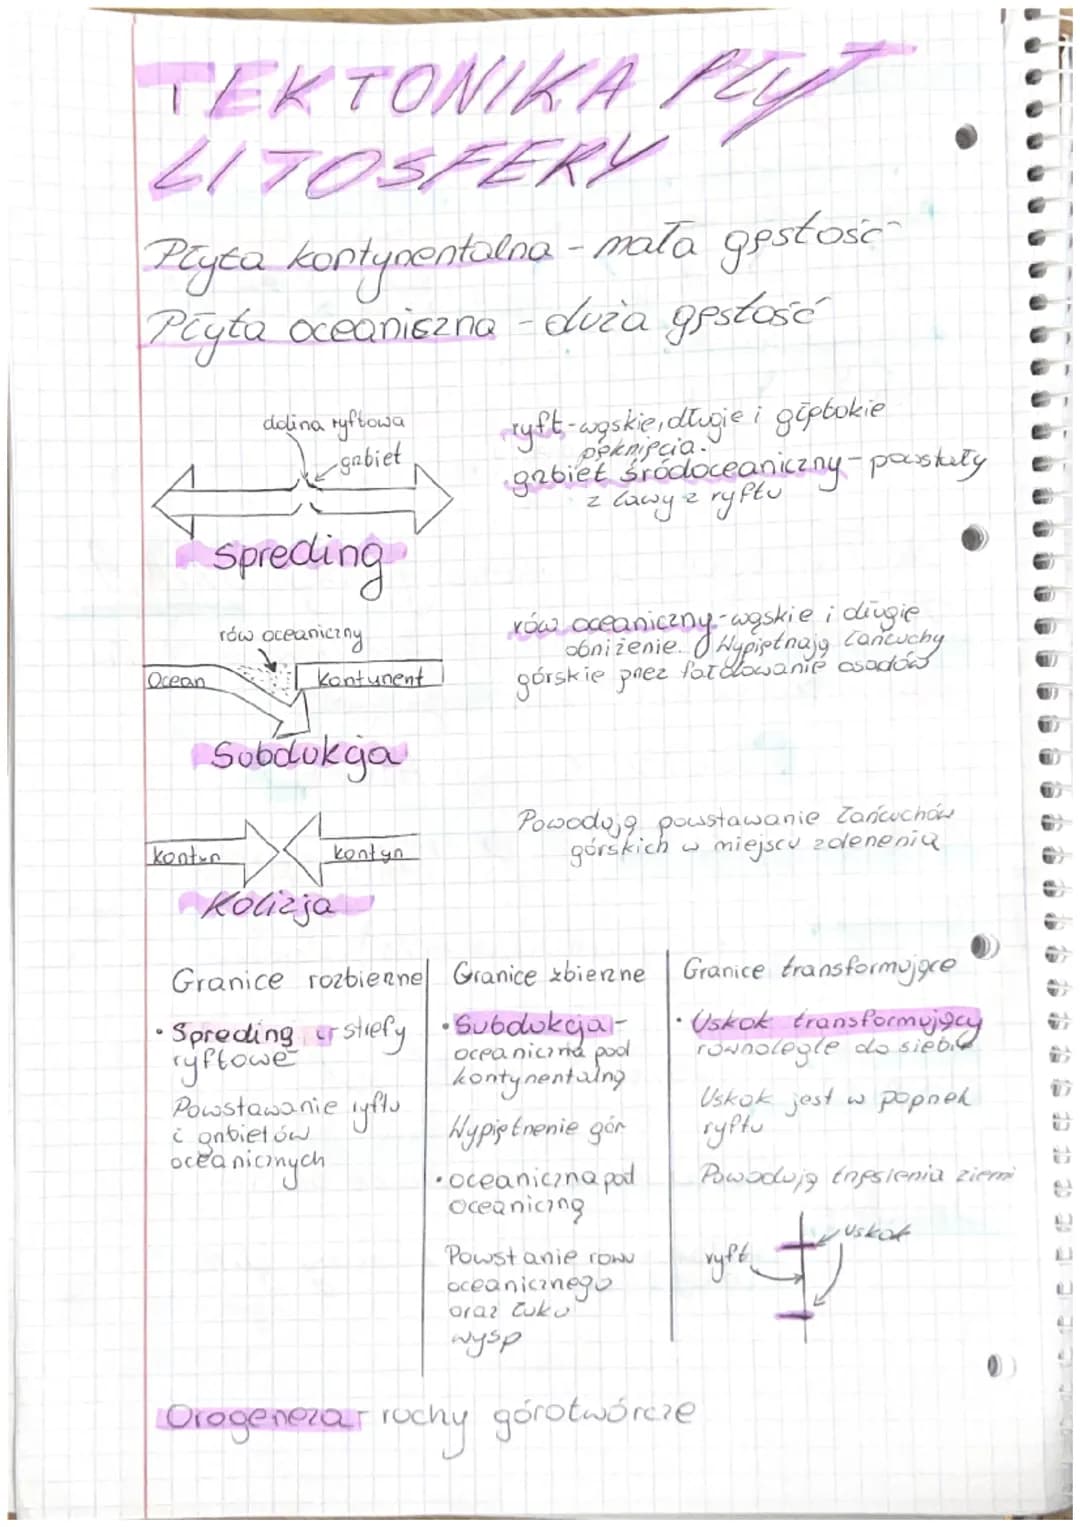 TEKTONIKA PŁYT
LITOSFERY
Płyta kontynentalna - mała gęstość
Płyta oceaniczna - duża gęstość
dolina ryftowa
grzbiet
ryft - wąskie, długie i głębokie
pęknięcia.
grzbiet śródoceaniczny - powstały
z lawy z ryftu
Spreding
rów oceaniczny
Ocean
Kontynent
rów oceaniczny - wąskie i długie
obniżenie. Wypiętrzają łańcuchy
górskie przez fałdowanie osadów
Subdukcja
kontyn
kontyn
Powodują powstawanie łańcuchów
górskich w miejscu zderzenia
Kolizja
Granice rozbieżne
• Spreding strefy
ryftowe
Powstawanie ryftu
i grzbietów
oceanicznych
Granice zbieżne
• Subdukcja -
oceaniczna pod
kontynentalną
Wypiętrzenie gór
• oceaniczna pod
oceaniczną
Powstanie rowu
oceanicznego
oraz łuku
wysp
Granice transformujące
• Uskok transformujący
równolegle do siebie
Uskok jest w poprzek
ryftu
Powodują trzęsienia ziemi
uskok
ryft
Orogeneza - ruchy górotwórcze